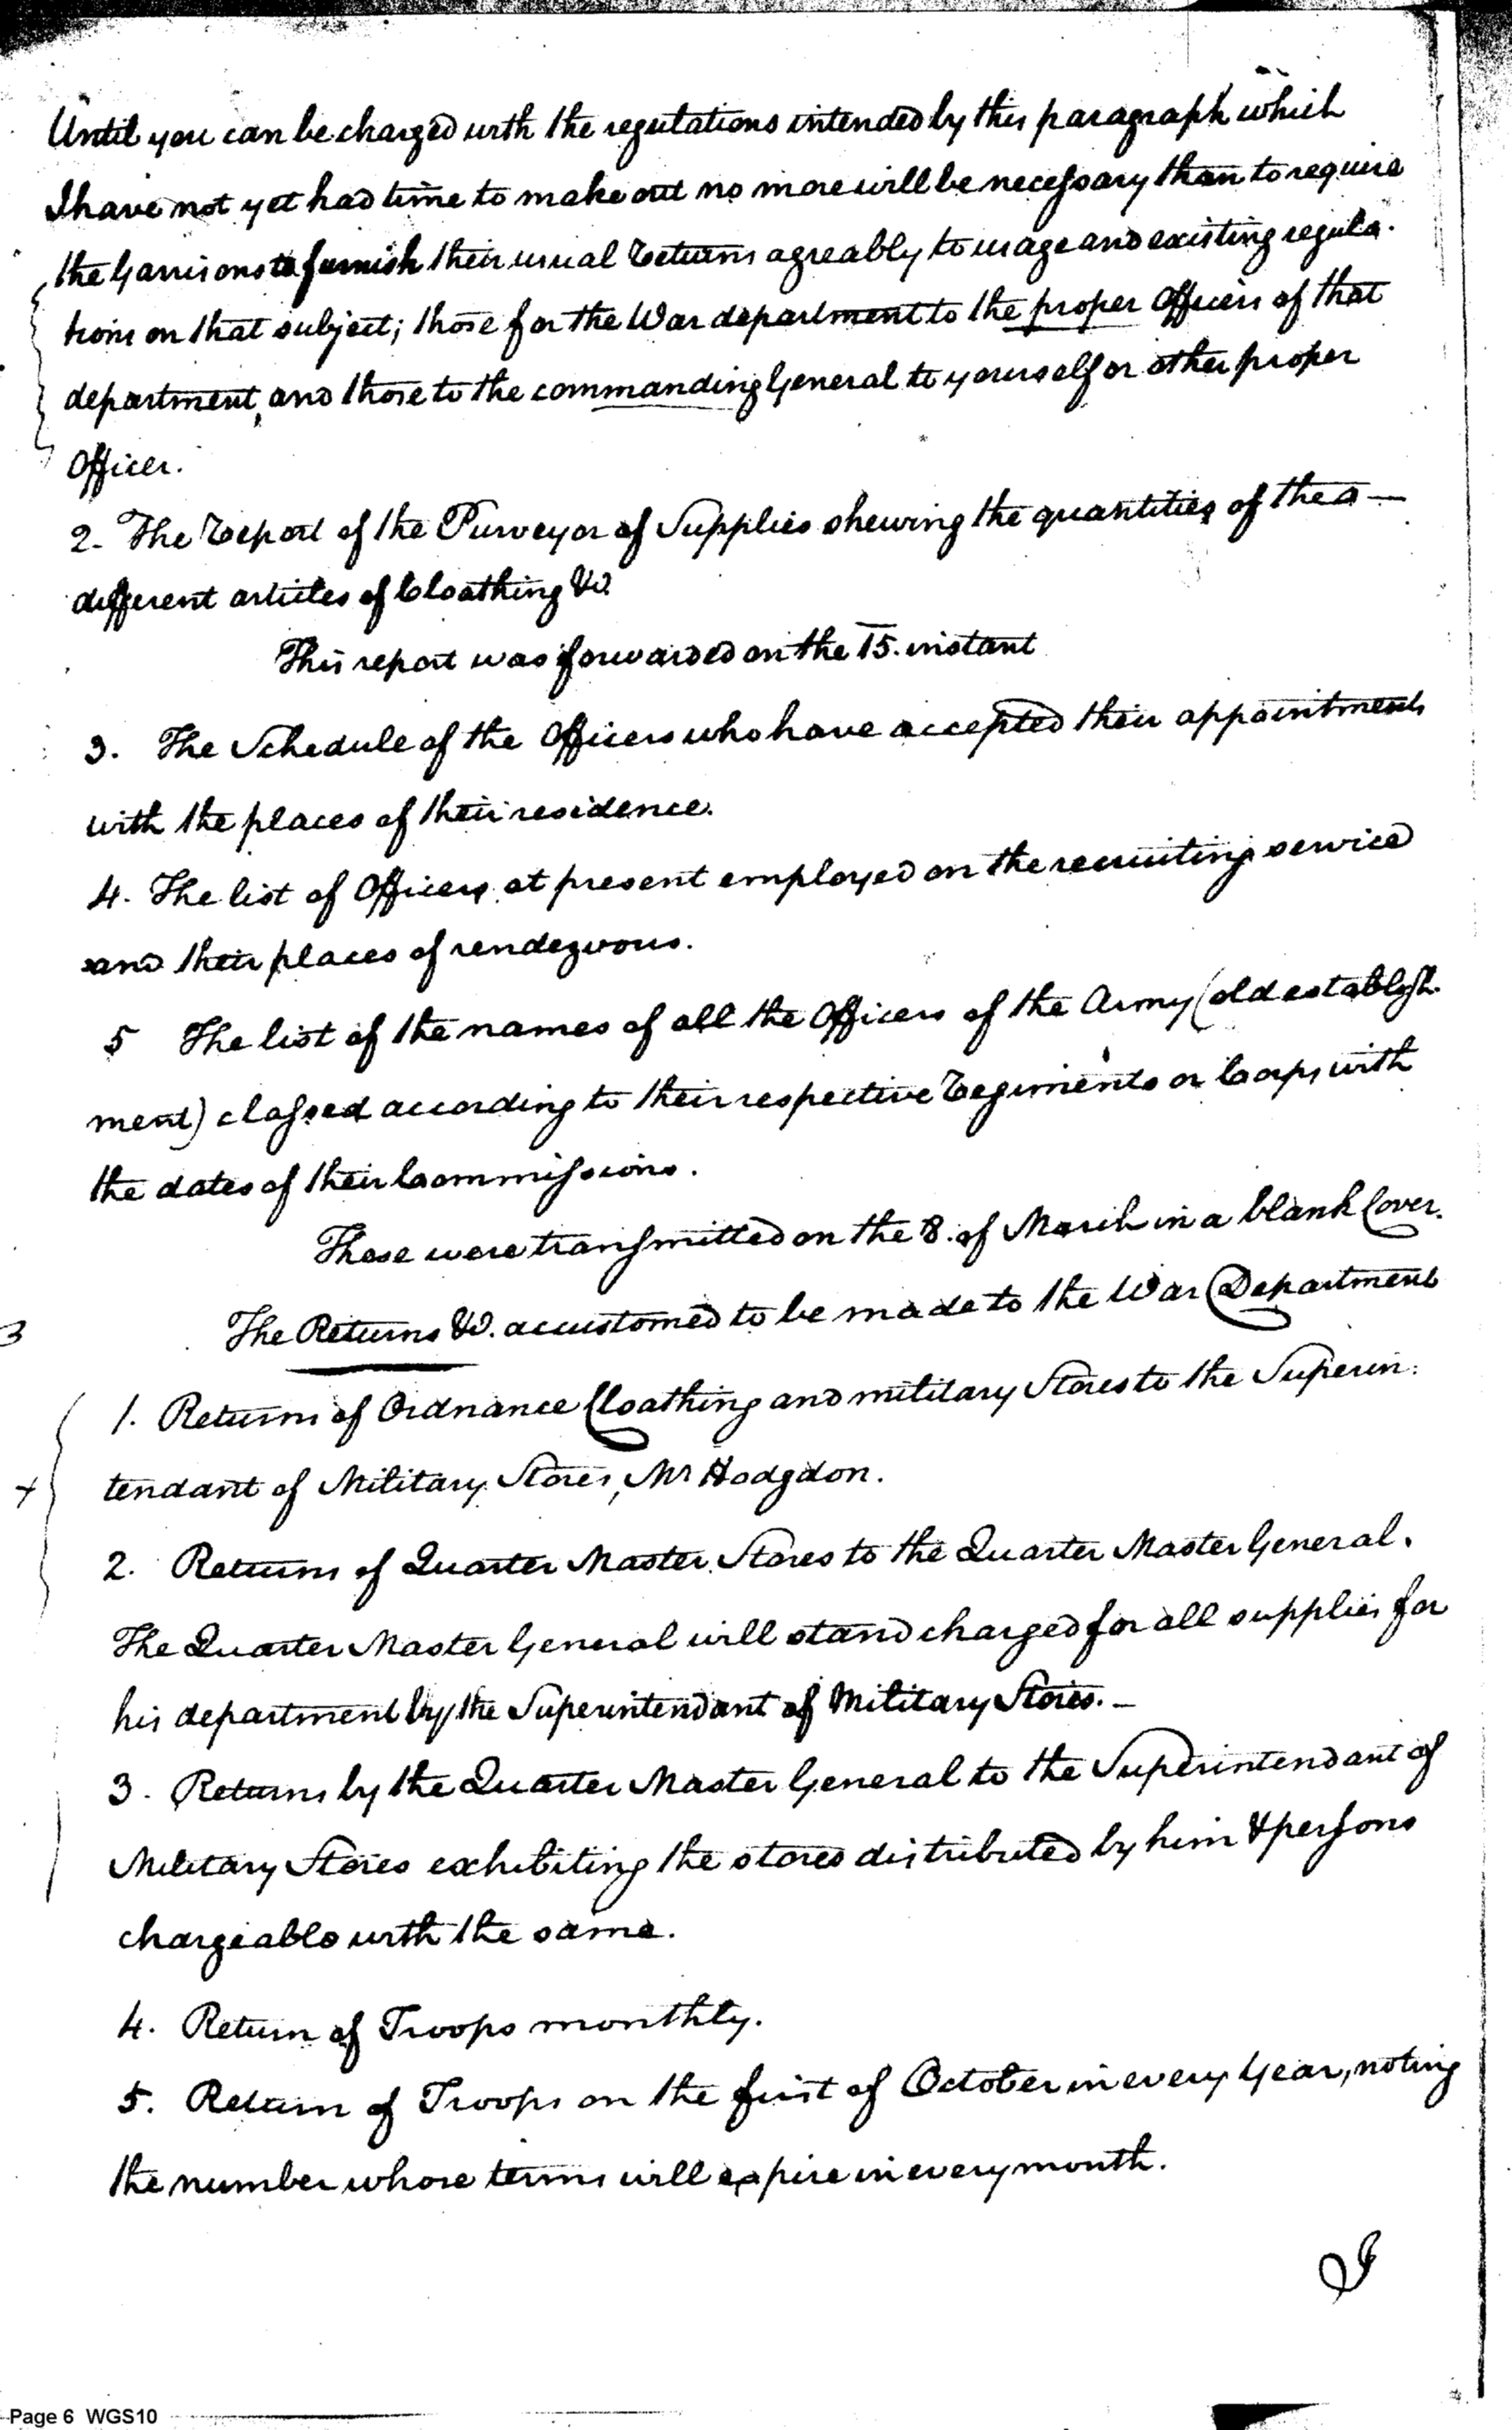 Until you can be charged with the regulations intended by this paragraph which
I have not yet had time to make out no more will be necessary than to require
the Garrisons to furnish their usual Returns agreably to usage and existing regula-
tions on that subject; those for the War department to the proper Officers of that
department, and those to the commanding General to yourself or other proper
Officer.
2. The Report of the Purveyor of Supplies shewing the quantities of the
different articles of Cloathing &c.
This report was forwarded on the 15. instant
3. The Schedule of the Officers who have accepted their appointments
with the places of their residence.
4. The list of Officers at present employed on the recruiting service
and their places of rendezvous.
5 The list of the names of all the Officers of the Army (old establish-
ment) classed according to their respective Regiments or Corps, with
the dates of their Commissions.
These were transmitted on the 8. of March in a blank Cover.
3 The Returns &c. accustomed to be made to the War Department
1. Returns of Ordnance Cloathing and military Stores to the Superin:
+ tendant of Military Stores, Mr Hodgdon.
2. Returns of Quarter Master Stores to the Quarter Master General.
The Quarter Master General will stand charged for all supplies for
his department by the Superintendant of Military Stores. —
3. Returns by the Quarter Master General to the Superintendant of
Military Stores exhibiting the stores distributed by him & persons
chargeable with the same.
4. Return of Troops monthly.
5. Return of Troops on the first of October in every year, noting
the number whose terms will expire in every month.
Page 6 WGS10